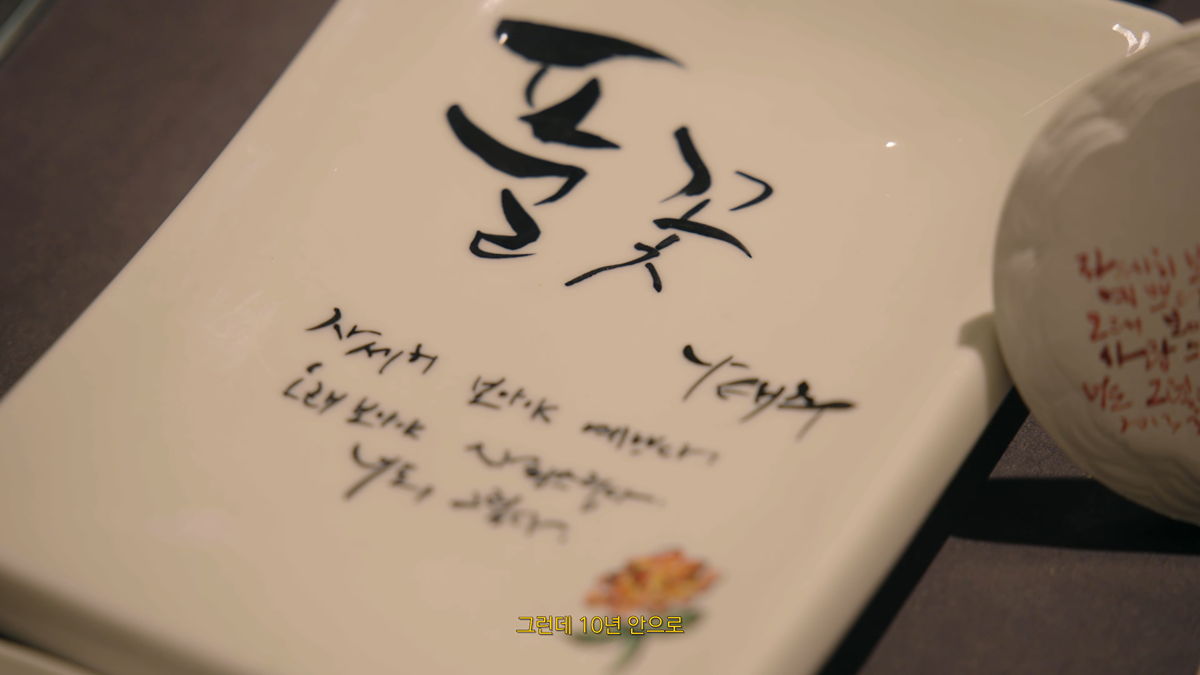 풀꽃
나태주
자세히 보아야 예쁘다.
오래 보아야 사랑스럽다.
너도 그렇다.
자세히
예쁘
오래
사랑스
너도 그렇
그런데 10년 안으로